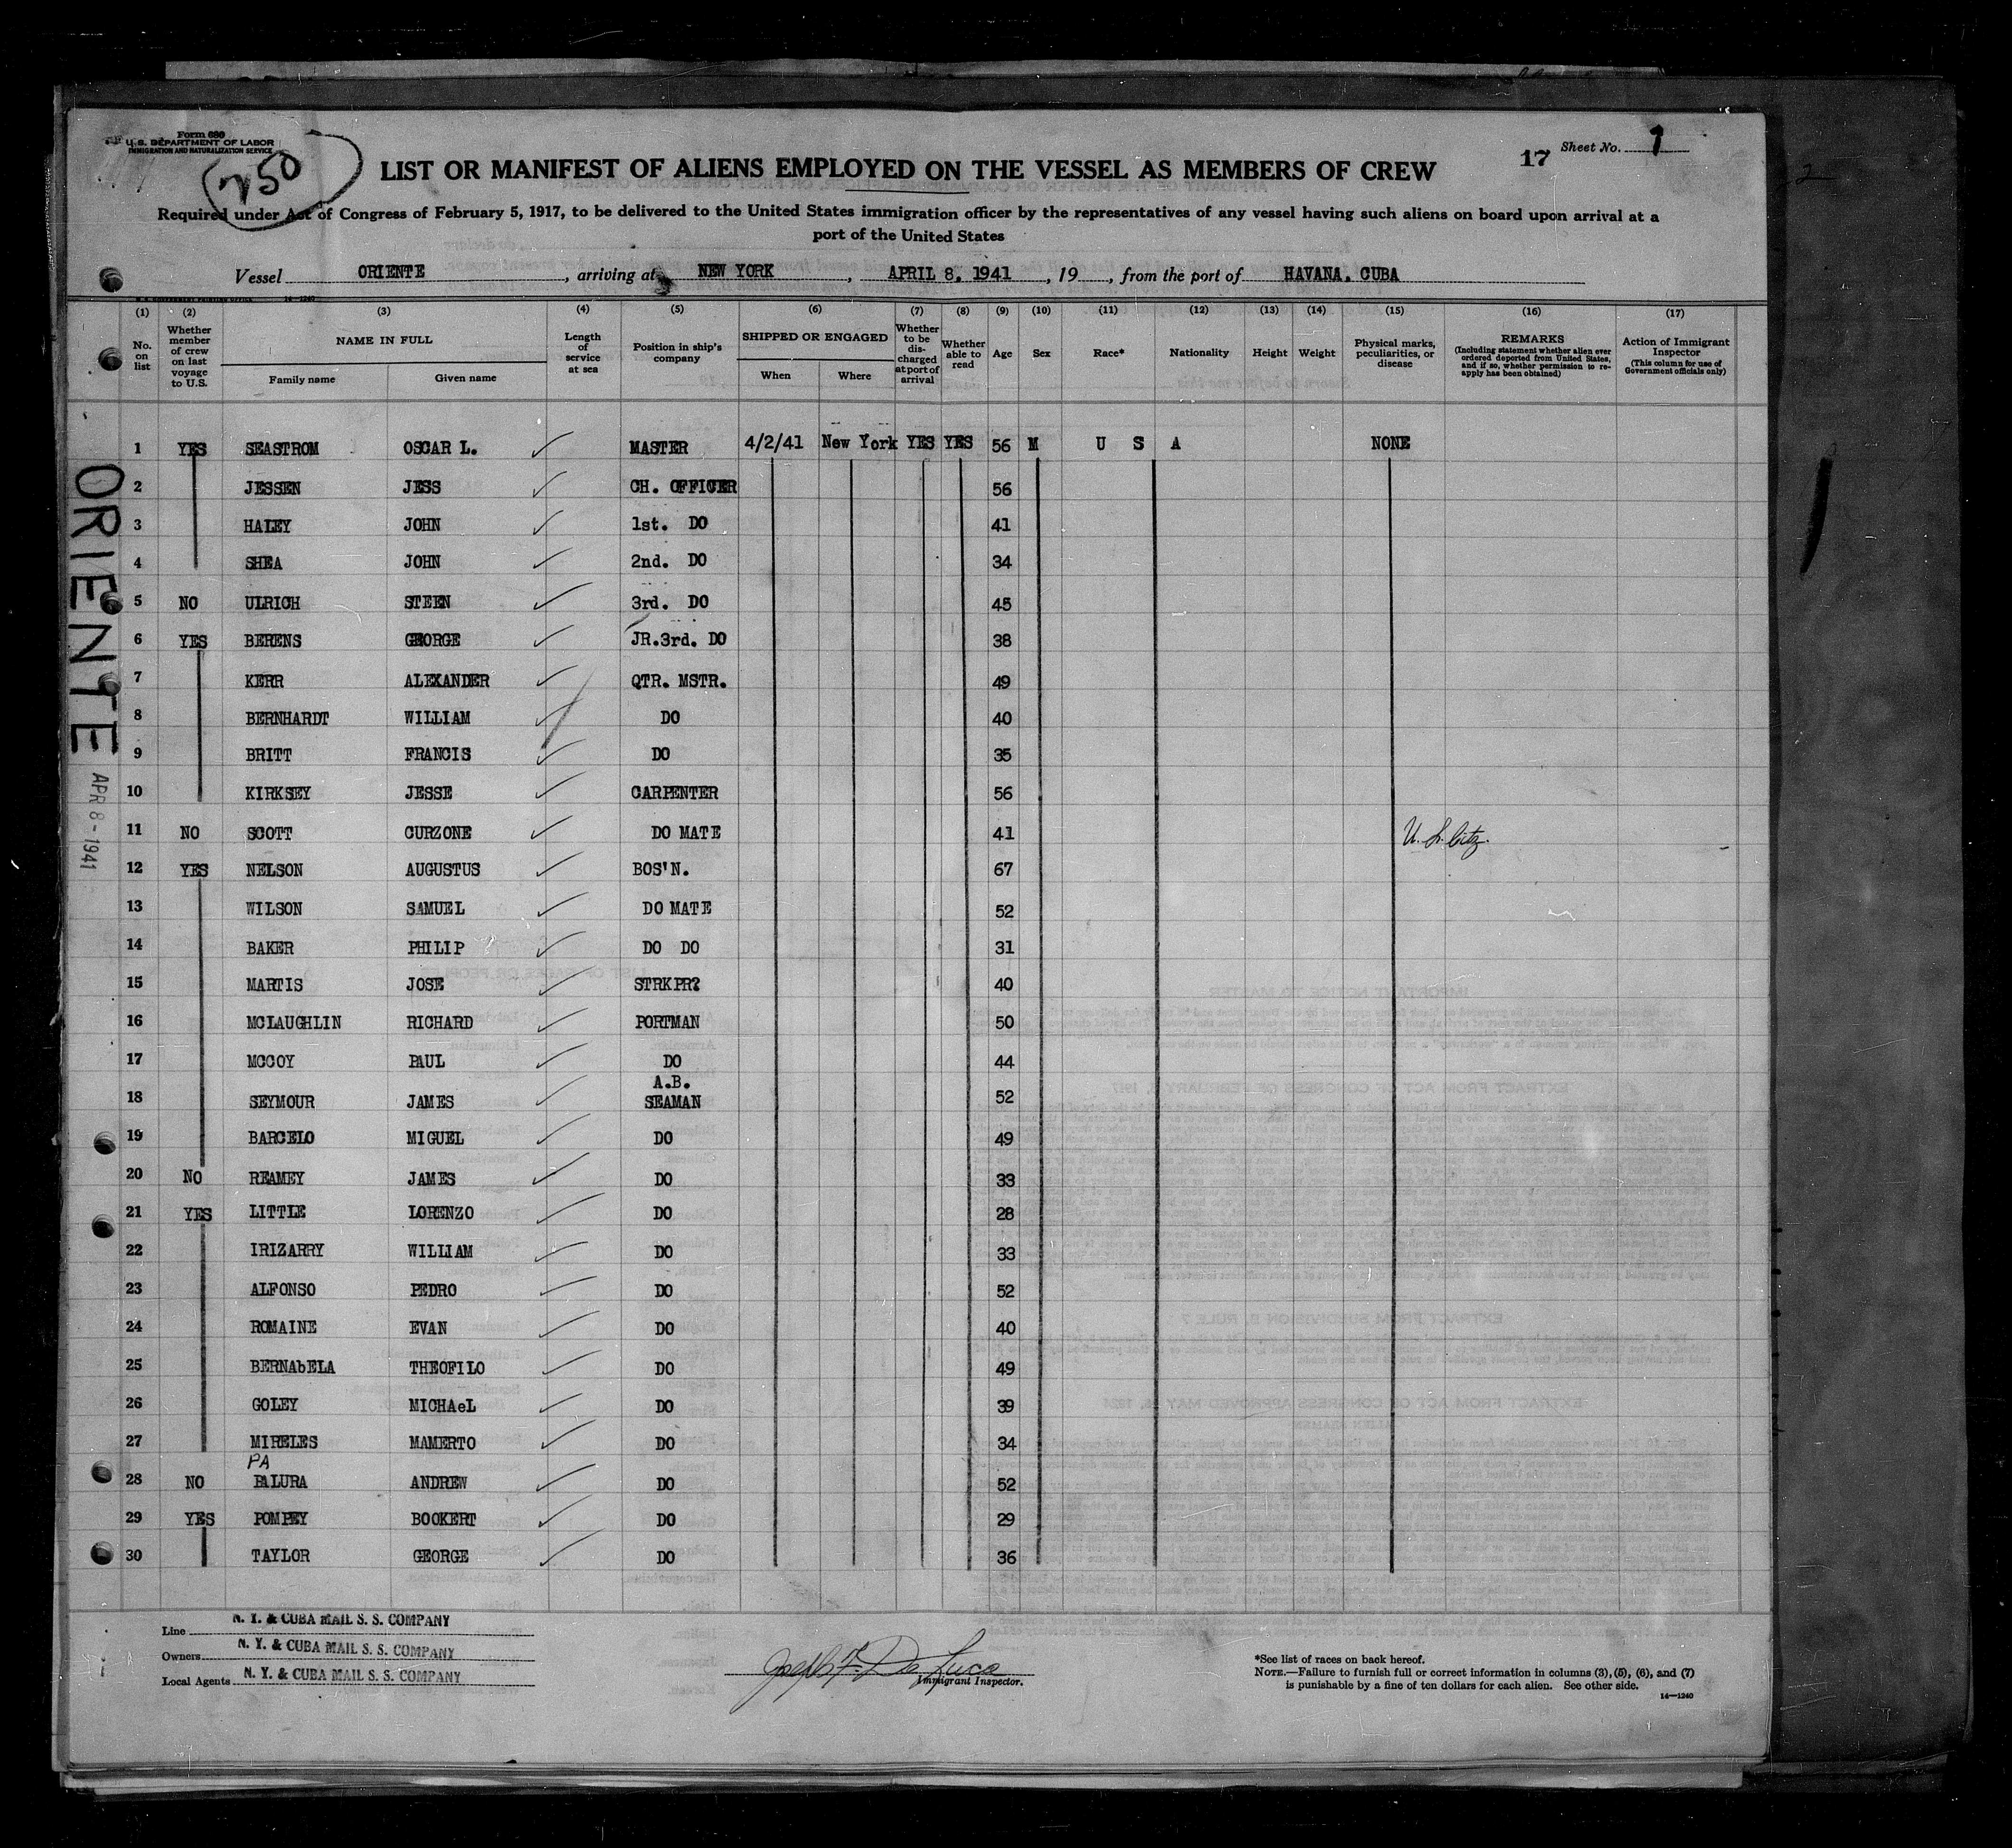 Form 680
U. S. DEPARTMENT OF LABOR
IMMIGRATION AND NATURALIZATION SERVICE
250
17 Sheet No. 1
LIST OR MANIFEST OF ALIENS EMPLOYED ON THE VESSEL AS MEMBERS OF CREW
Required under Act of Congress of February 5, 1917, to be delivered to the United States immigration officer by the representatives of any vessel having such aliens on board upon arrival at a
port of the United States
Vessel ORIENTE, arriving at NEW YORK, APRIL 8, 1941, 19, from the port of HAVANA, CUBA
(1) (2) (3) (4) (5) (6) (7) (8) (9) (10) (11) (12) (13) (14) (15) (16) (17)
No. on list
Whether member of crew on last voyage to U.S.
NAME IN FULL
Family name Given name
Length of service at sea
Position in ship's company
SHIPPED OR ENGAGED
When Where
Whether to be discharged at port of arrival
Whether able to read
Age
Sex
Race*
Nationality
Height
Weight
Physical marks, peculiarities, or disease
REMARKS
(Including statement whether alien ever ordered deported from United States, and if so, whether permission to reapply has been obtained)
Action of Immigrant Inspector
(This column for use of Government officials only)
1 YES SEASTROM OSCAR L. MASTER 4/2/41 New York YES YES 56 M U S A NONE
2 JESSEN JESS CH. OFFICER 56
3 HALEY JOHN 1st. DO 41
4 SHEA JOHN 2nd. DO 34
5 NO ULRICH STEEN 3rd. DO 45
6 YES BERENS GEORGE JR.3rd. DO 38
7 KERR ALEXANDER QTR. MSTR. 49
8 BERNHARDT WILLIAM DO 40
9 BRITT FRANCIS DO 35
10 KIRKSEY JESSE CARPENTER 56
11 NO SCOTT CURZONE DO MATE 41 U. S. Citz.
12 YES NELSON AUGUSTUS BOS'N. 67
13 WILSON SAMUEL DO MATE 52
14 BAKER PHILIP DO DO 31
15 MARTIS JOSE STRKPR? 40
16 MCLAUGHLIN RICHARD PORTMAN 50
17 MCCOY PAUL DO 44
18 SEYMOUR JAMES A.B. SEAMAN 52
19 BARCELO MIGUEL DO 49
20 NO REAMEY JAMES DO 33
21 YES LITTLE LORENZO DO 28
22 IRIZARRY WILLIAM DO 33
23 ALFONSO PEDRO DO 52
24 ROMAINE EVAN DO 40
25 BERNAbELA THEOFILO DO 49
26 GOLEY MICHAeL DO 39
27 MIRELES MAMERTO DO 34
PA
28 NO PALURA ANDREW DO 52
29 YES POMPEY BOOKERT DO 29
30 TAYLOR GEORGE DO 36
ORIENTE
APR 8 - 1941
Line N. Y. & CUBA MAIL S. S. COMPANY
Owners N. Y. & CUBA MAIL S. S. COMPANY
Local Agents N. Y. & CUBA MAIL S. S. COMPANY
Joseph F. De Luca
Immigrant Inspector.
*See list of races on back hereof.
NOTE.—Failure to furnish full or correct information in columns (3), (5), (6), and (7)
is punishable by a fine of ten dollars for each alien. See other side.
14—1240